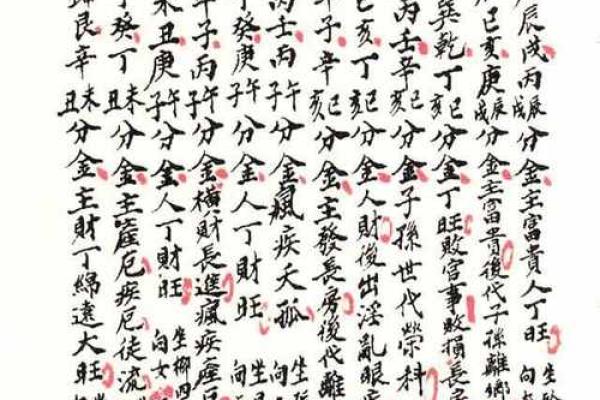 辰戌丙辰戌分金主富貴人丁旺坐向
巳亥庚辰戌分金主富貴後代子孫離鄉
巽乾丁巳亥分金丁旺敗官事敗損長房
丙壬辛巳亥分金子孫世代榮科
亥丁巳亥分金人財後出淫亂眼
子辛亥巳分金主發長房後代離
丙壬丙午子分金瘋疾夭孤坐向
子癸庚午子分金人丁財旺坐向
午子丙午子分金橫財長進瘋疾
丑庚午子分金人丁財旺坐柳四向女
子癸丁未丑分金主厄疾厄徒流
艮辛未丑分金主財丁綿遠大旺